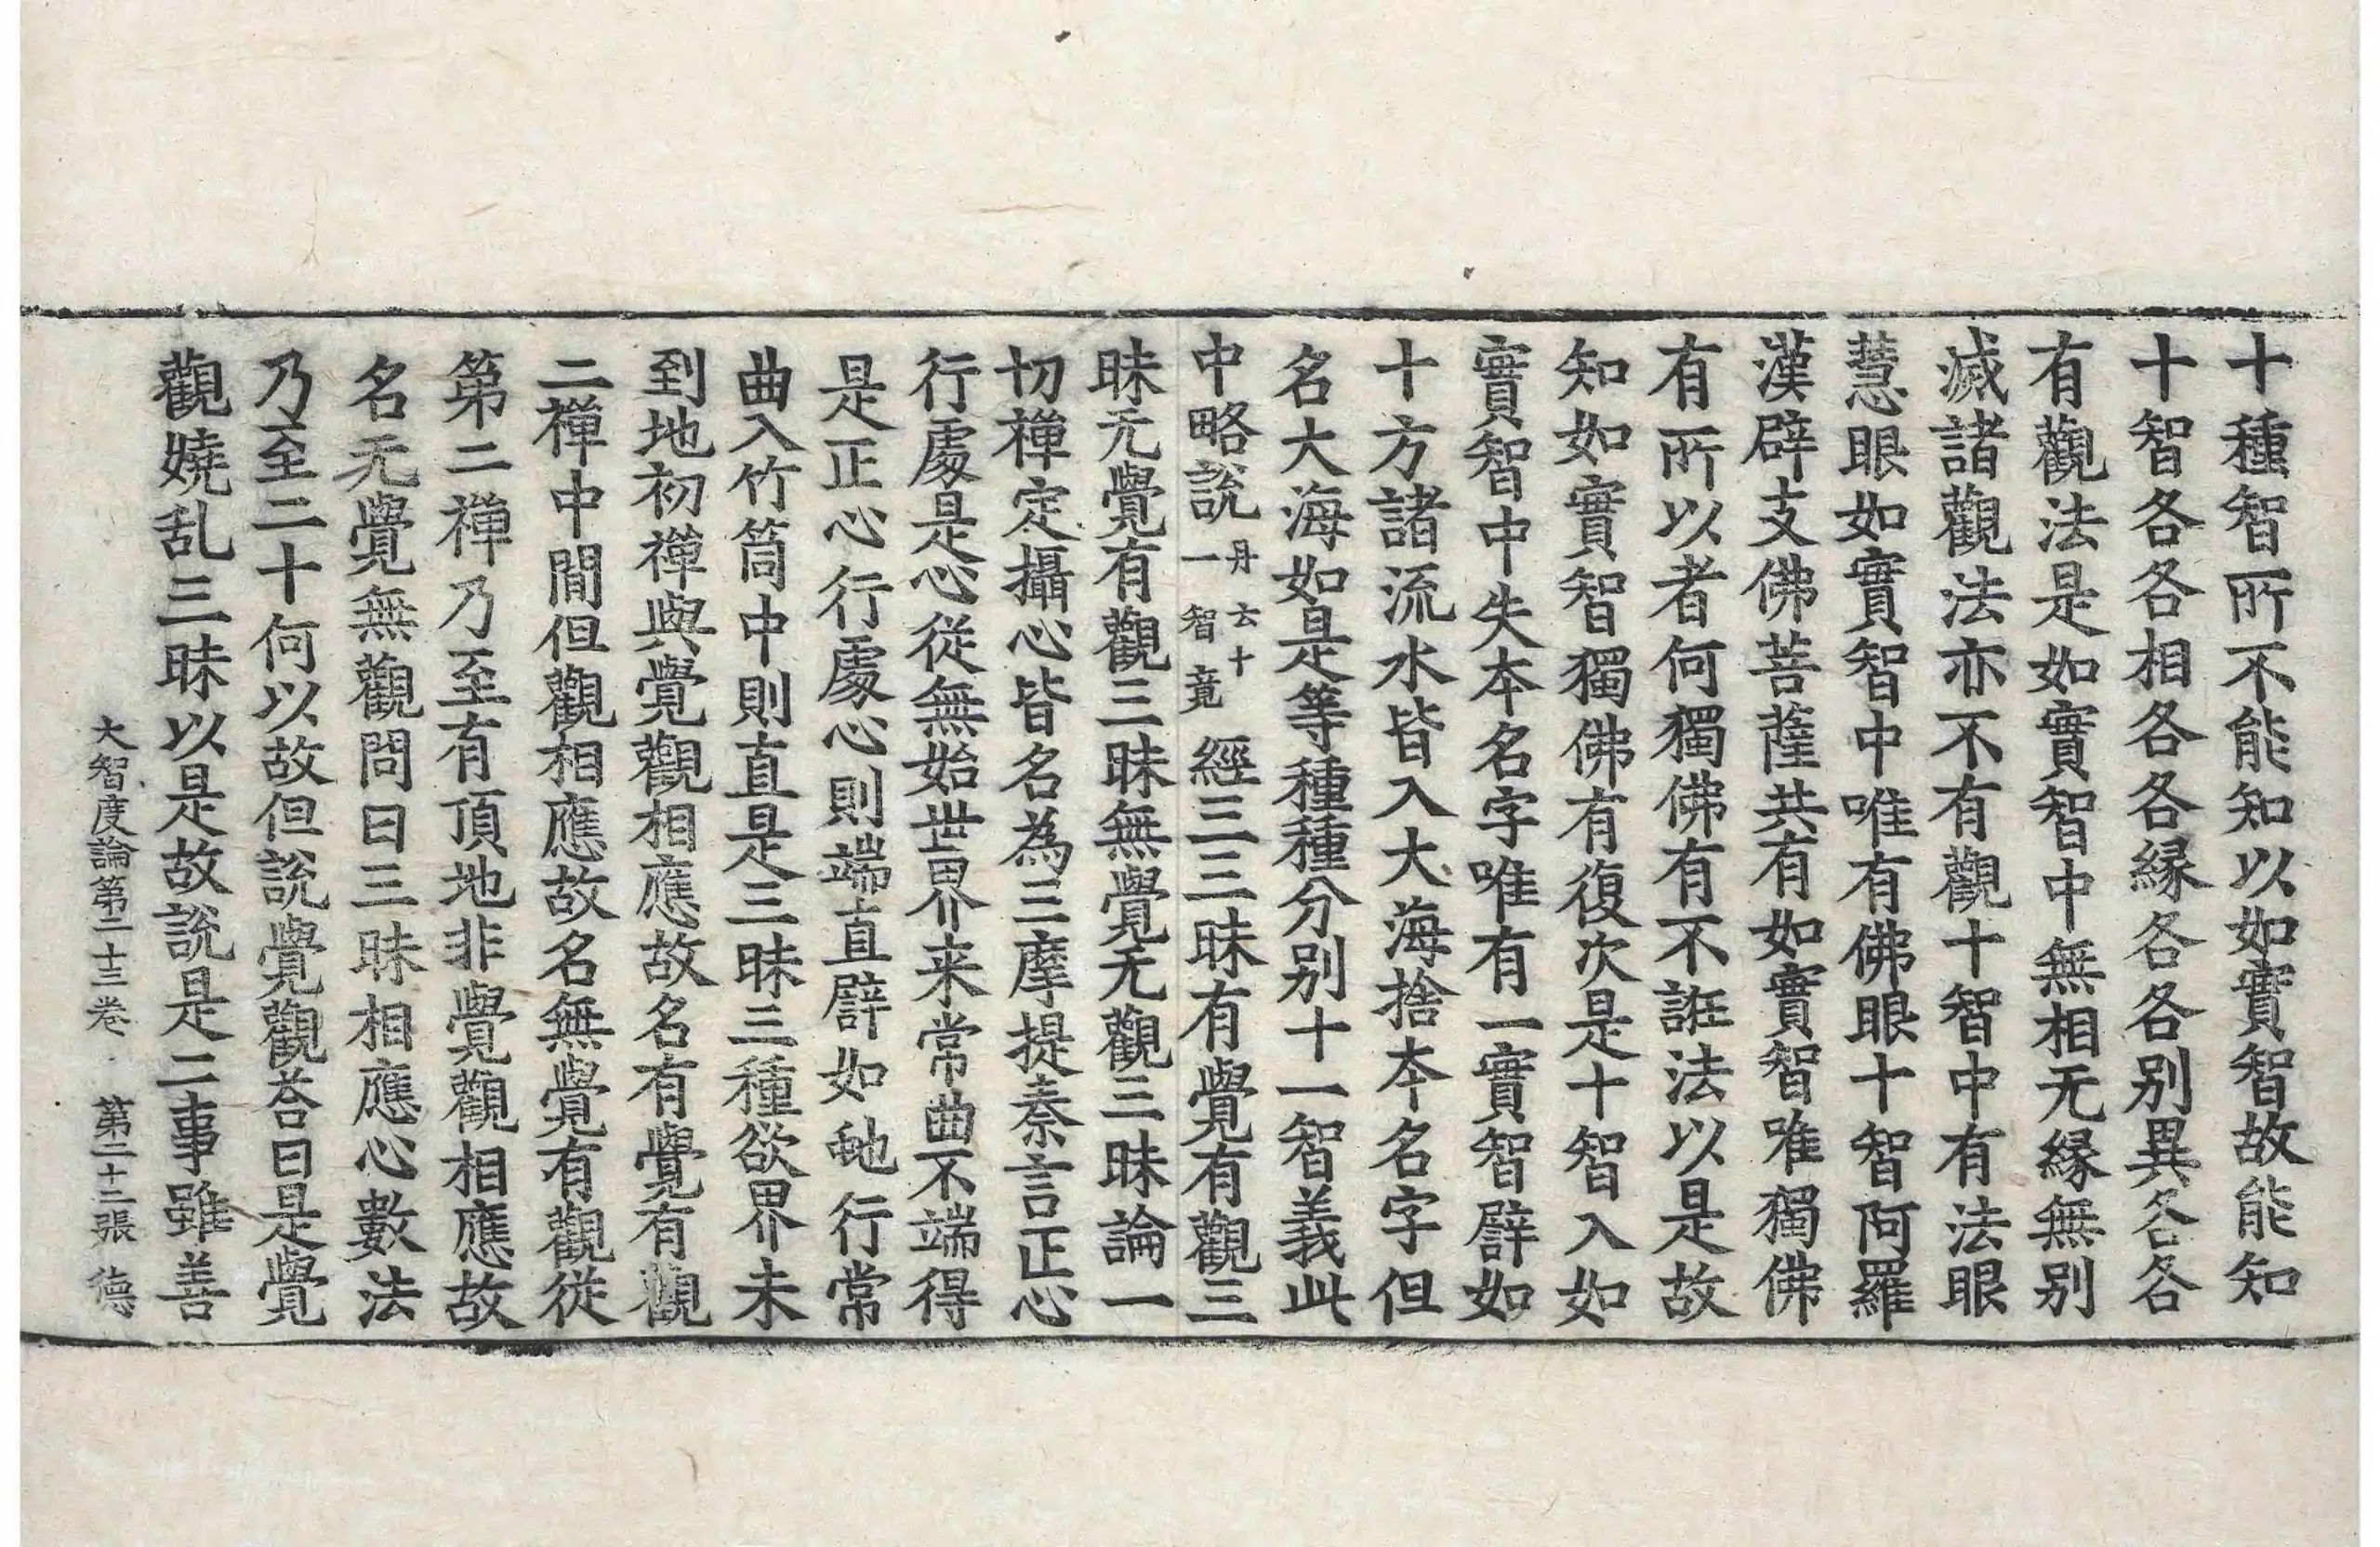 十種智所不能知以如實智故能知
十智各各相各各縁各各別異各各
有觀法是如實智中無相无縁無別
滅諸觀法亦不有觀十智中有法眼
慧眼如實智中唯有佛眼十智阿羅
漢辟支佛菩薩共有如實智唯獨佛
有所以者何獨佛有不誑法以是故
知如實智獨佛有復次是十智入如
實智中失本名字唯有一實智譬如
十方諸流水皆入大海捨本名字但
名大海如是等種種分别十一智義此
中略說丹云十一智竟經三三昧有覺有觀三
昧无覺有觀三昧無覺无觀三昧論一
切禅定攝心皆名為三摩提秦言正心
行處是心從無始世界来常曲不端得
是正心行處心則端直譬如虵行常
曲入竹筒中則直是三昧三種欲界未
到地初禅與覺觀相應故名有覺有觀
二禅中間但觀相應故名無覺有觀從
第二禅乃至有頂地非覺觀相應故
名无覺無觀問曰三昧相應心數法
乃至二十何以故但說覺觀荅曰是覺
觀嬈乱三昧以是故說是二事雖善
大智度論第二十三卷 第二十二張 德